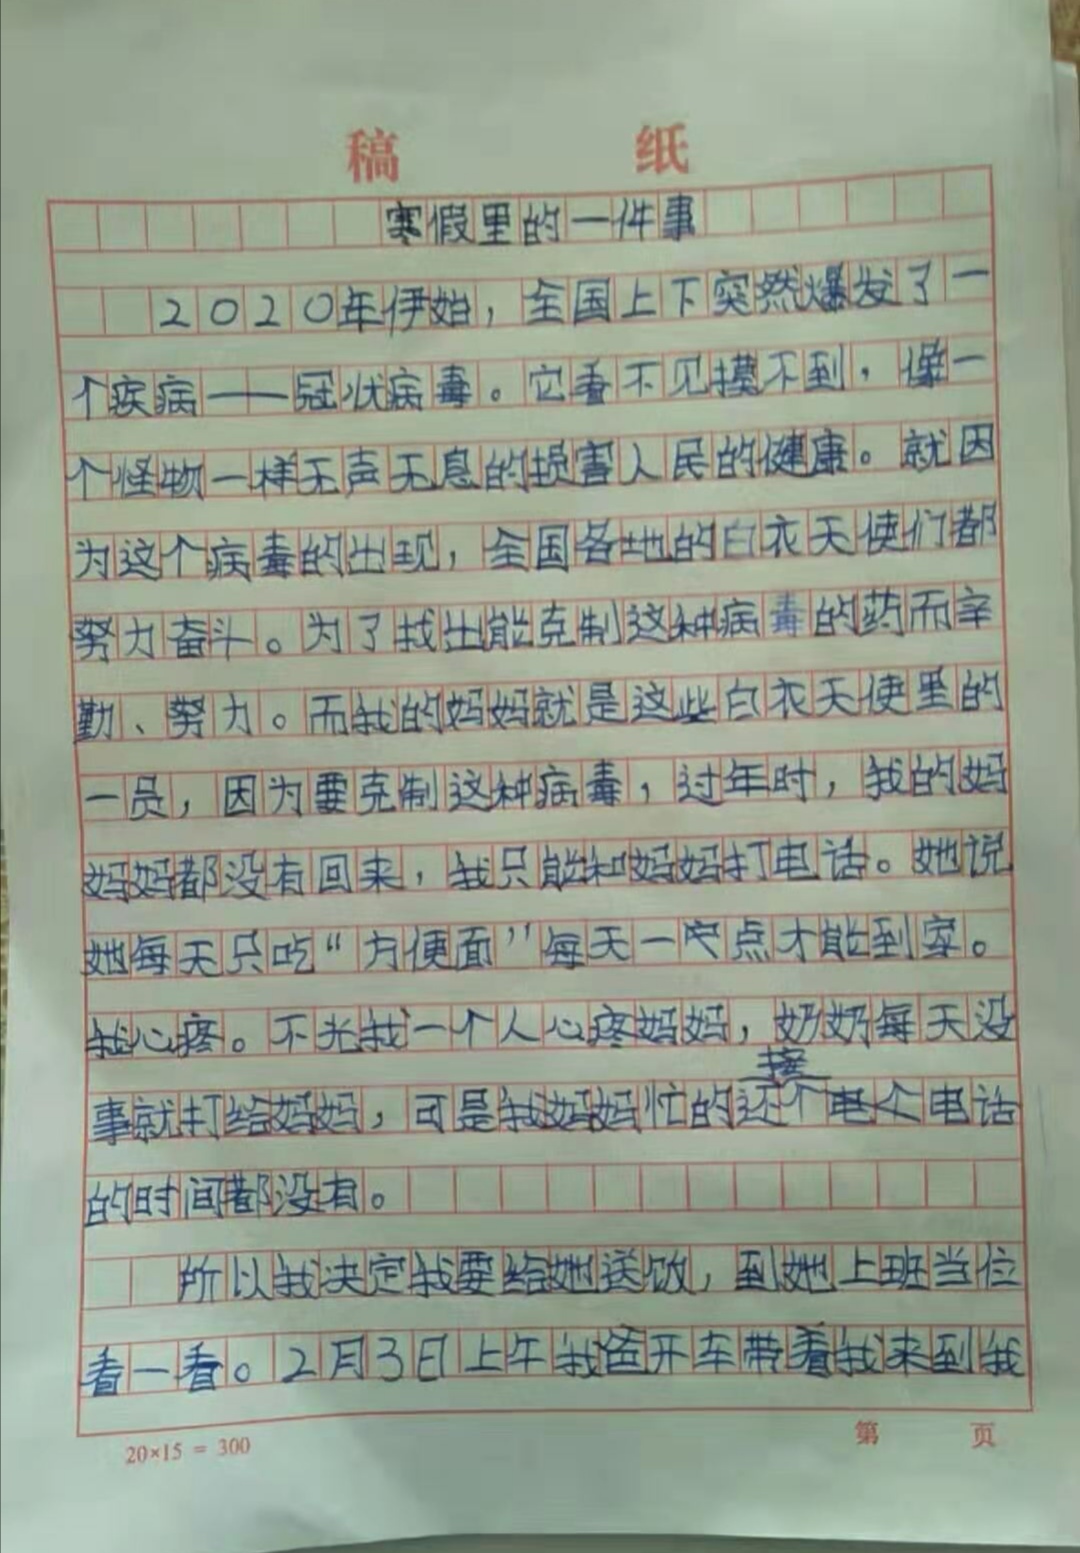 稿 纸
寒假里的一件事
2020年伊始，全国上下突然爆发了一
个疾病——冠状病毒。它看不见摸不到，像一
个怪物一样无声无息的损害人民的健康。就因
为这个病毒的出现，全国各地的白衣天使们都
努力奋斗。为了找出能克制这种病毒的药而辛
勤、努力。而我的妈妈就是这些白衣天使里的
一员，因为要克制这种病毒，过年时，我的妈
妈妈都没有回来，我只能和妈妈打电话。她说
她每天只吃“方便面”每天一两点才能到家。
我心疼。不光我一个人心疼妈妈，奶奶每天没
接
事就打给妈妈，可是我妈妈忙的还个电个电话
的时间都没有。
所以我决定我要给她送饭，到她上班当位
看一看。2月3日上午我爸开车带着我来到我
20×15 = 300
第 页